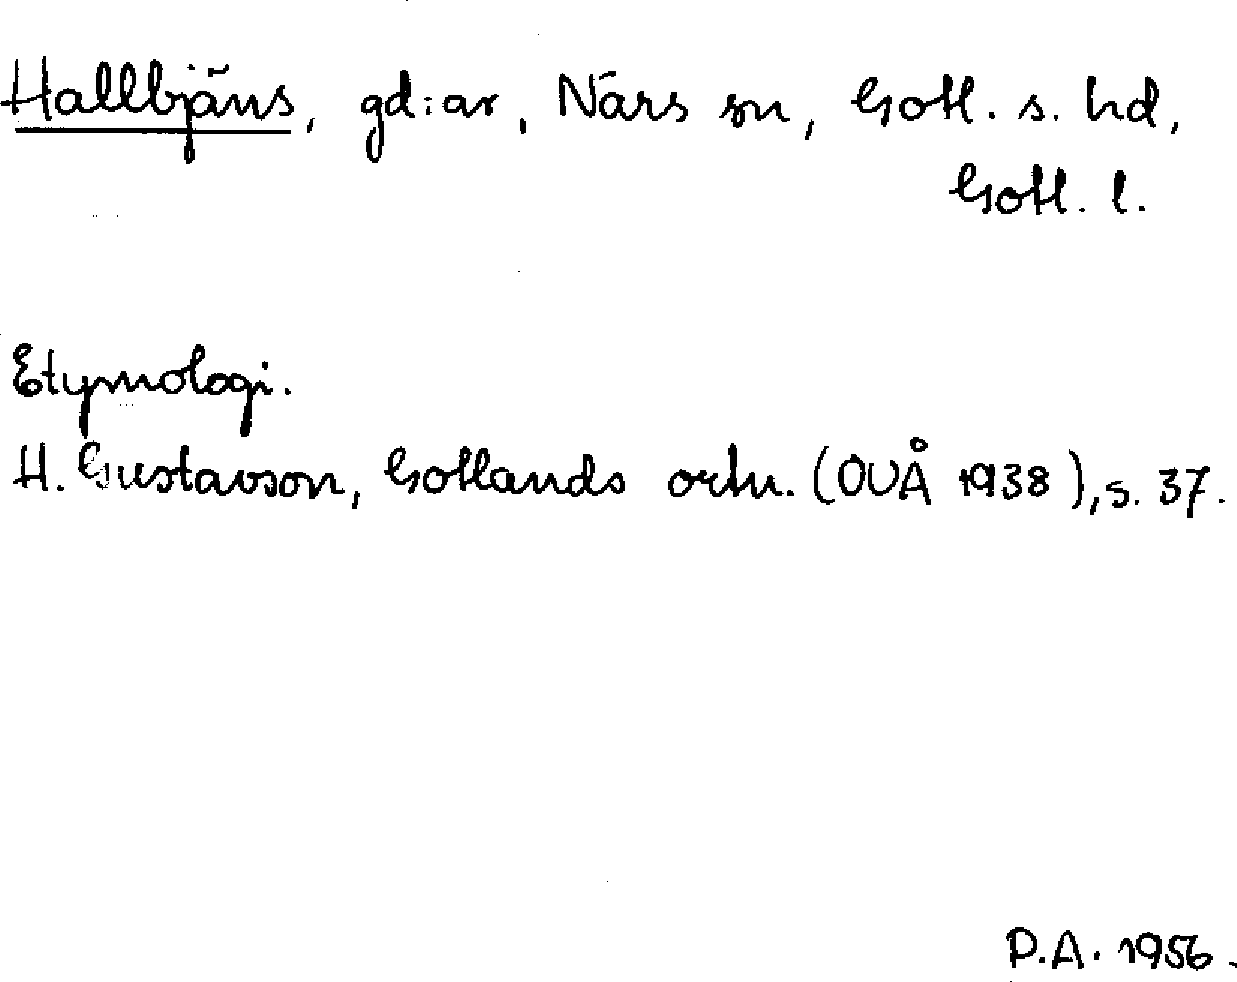 Hallbjäns, gd:ar, Närs sn, Gotl. s. hd,
Gotl. l.
Etymologi.
H. Gustavson, Gotlands ortn. (OUÅ 1938), s. 37.
P.A. 1956.